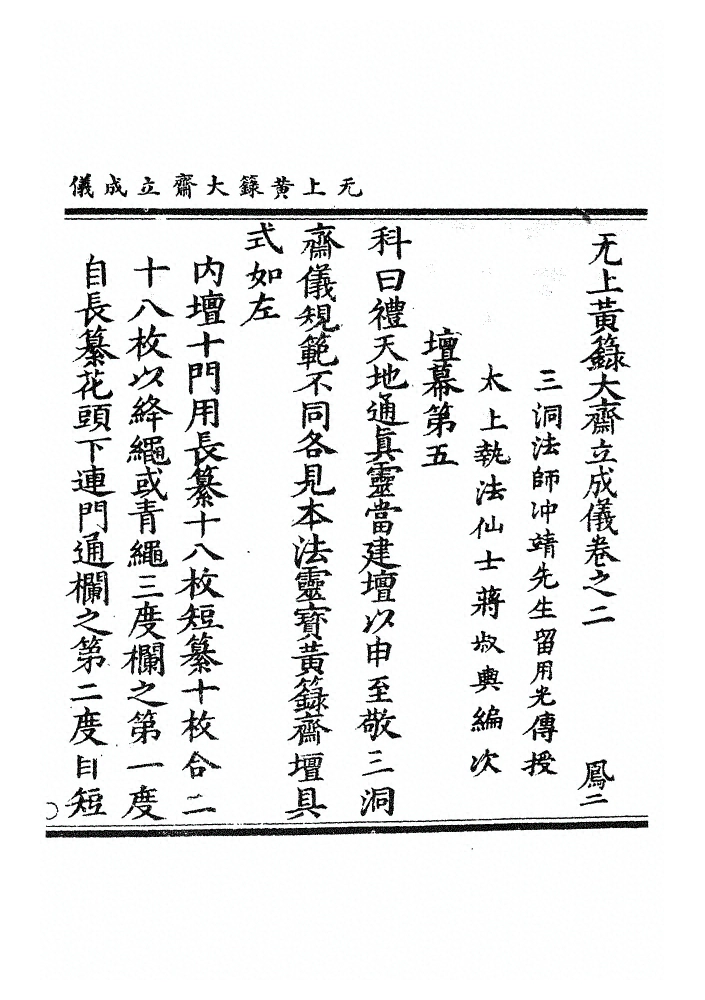 无上黄籙大齋立成儀
无上黄籙大齋立成儀卷之二 鳳二
三洞法師沖靖先生留用光傳授
太上執法仙士蔣叔輿編次
壇幕第五
科曰禮天地通眞靈當建壇以申至敬三洞
齋儀規範不同各見本法靈寳黄籙齋壇具
式如左
内壇十門用長纂十八枚短纂十枚合二
十八枚以絳繩或青繩三度欄之第一度
自長纂花頭下連門通欄之第二度自短